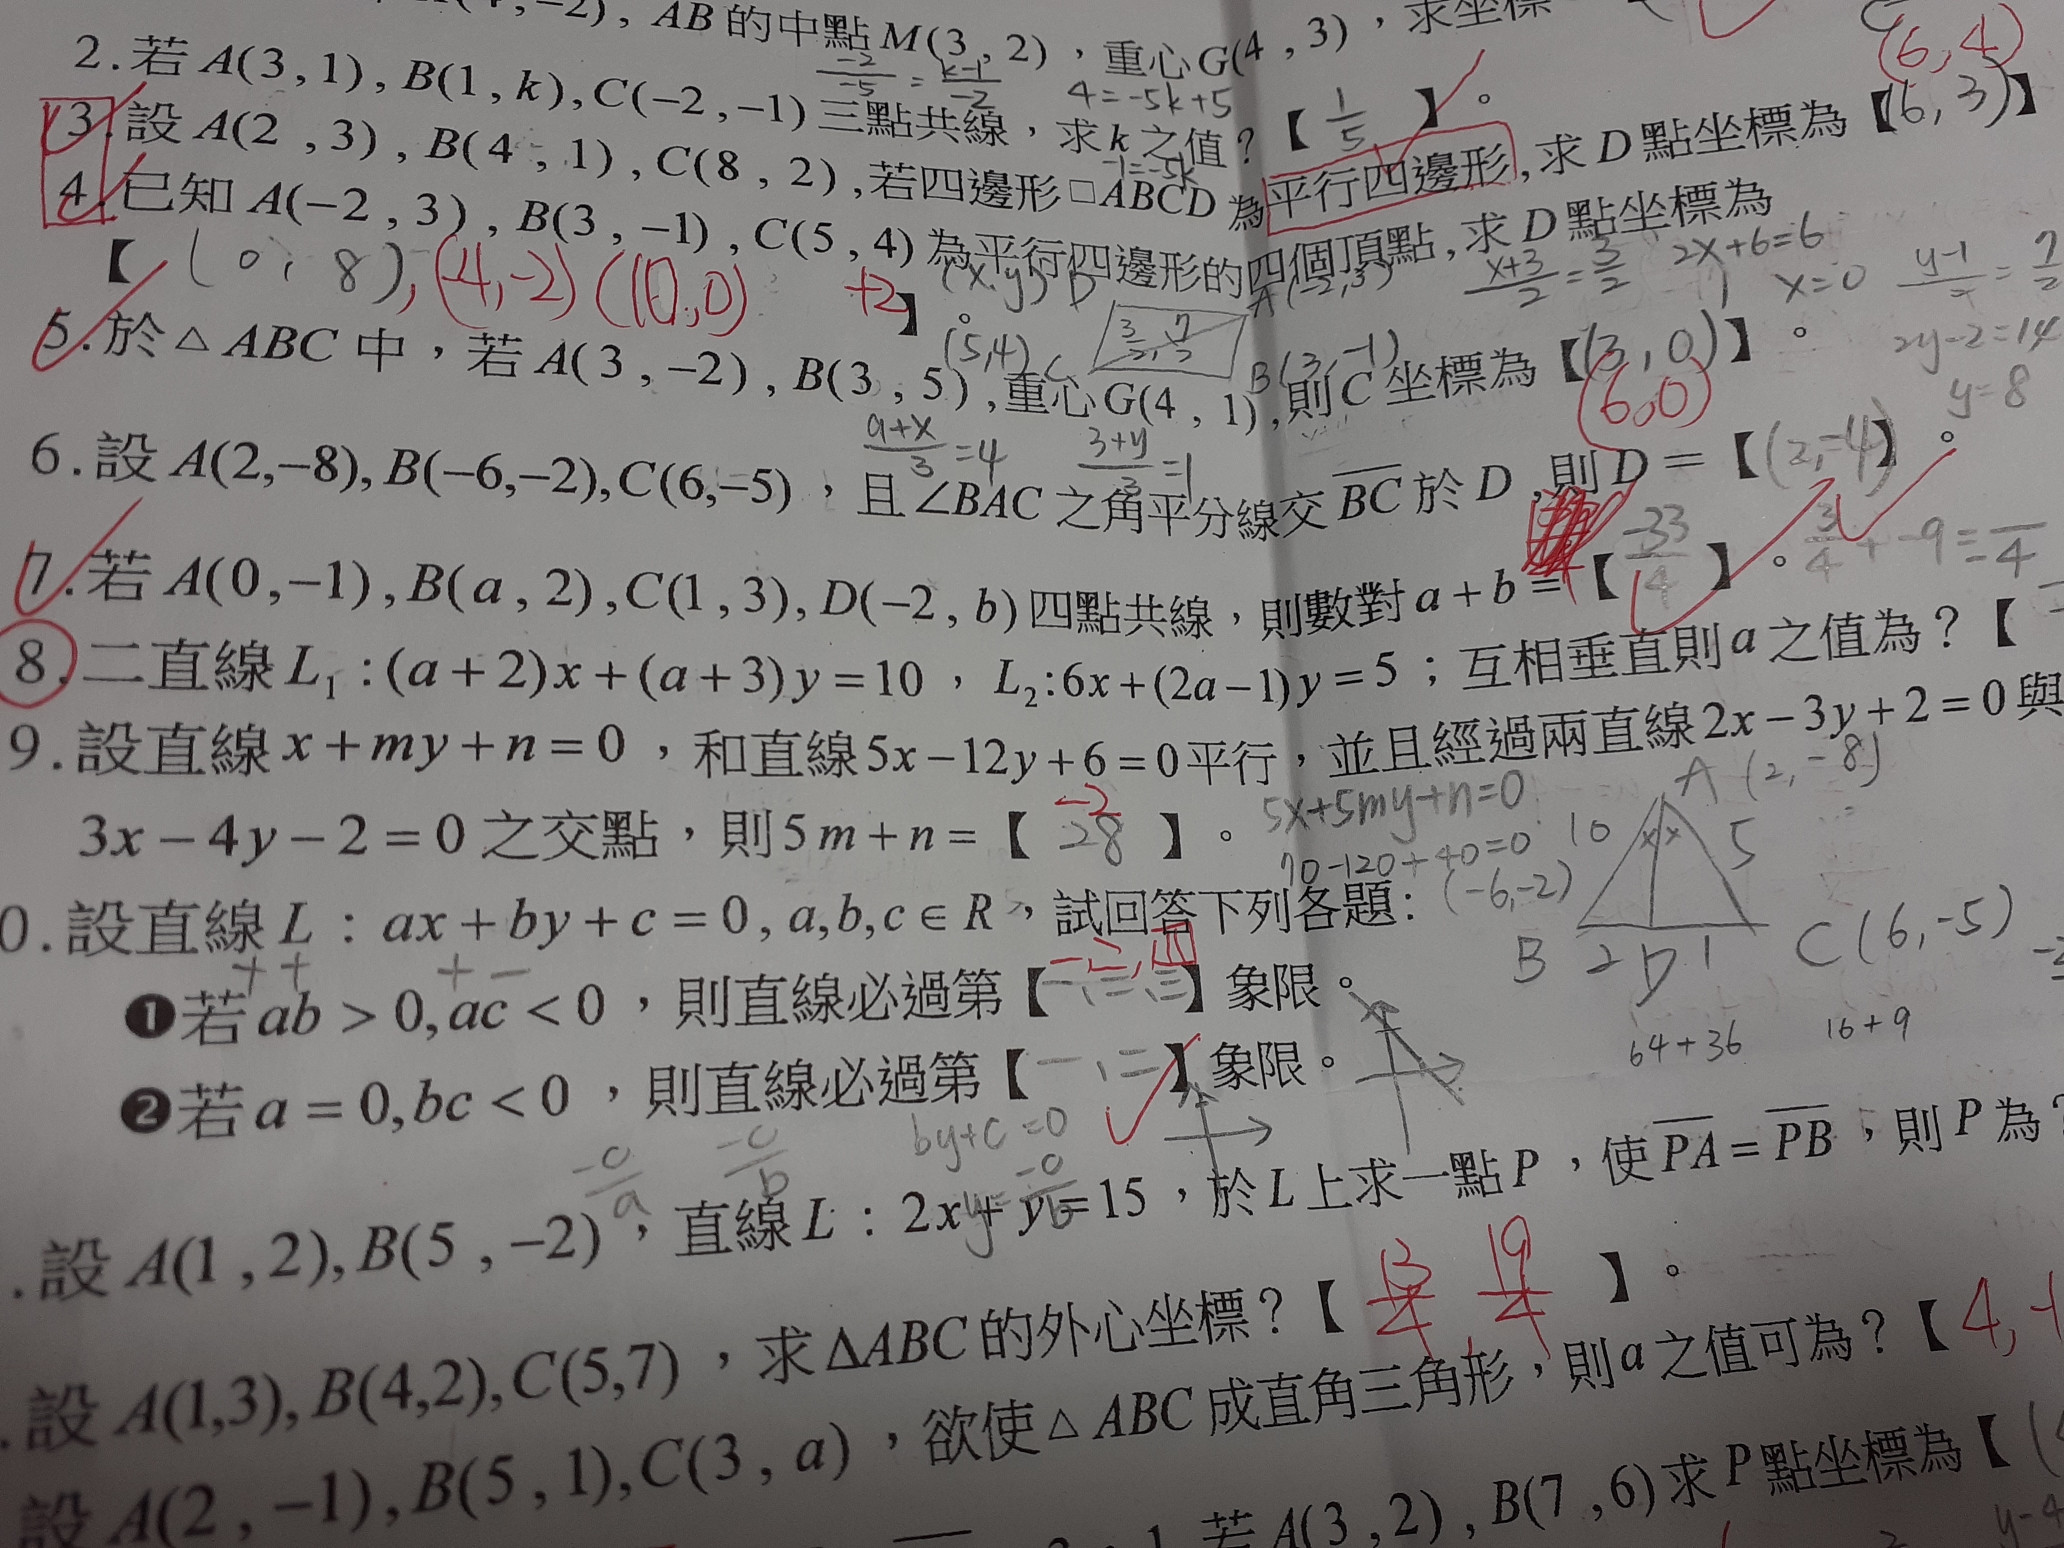 −2), AB的中點M(3,2)，重心G(4,3)，求坐標
(6,4)
2.若A(3,1),B(1,k),C(−2,−1)三點共線，求k之值？【1/5】。
-2/-5=k-1/-2
4=-5k+5
-1=-5k
3.設A(2,3),B(4,1),C(8,2),若四邊形□ABCD為平行四邊形,求D點坐標為【(6,3)】
4.已知A(−2,3),B(3,−1),C(5,4)為平行四邊形的四個頂點,求D點坐標為
【(0,8),(-4,-2)(10,0) +2】。
(x,y) D
A(-2,3)
x+3/2=3/2
2x+6=6
x=0
y-1/2=7/2
(5,4) C
3/2,7/2
B(3,-1)
2y-2=14
y=8
5.於△ABC中，若A(3,−2),B(3,5),重心G(4,1),則C坐標為【(3,0)】。
(6,0)
9+x/3=4
3+y/3=1
6.設A(2,−8),B(−6,−2),C(6,−5)，且∠BAC之角平分線交BC於D,則D=【(2,-4)】。
7.若A(0,−1),B(a,2),C(1,3),D(−2,b)四點共線，則數對a+b=【-33/4】。
3/4+-9=-/4
8.二直線L₁:(a+2)x+(a+3)y=10，L₂:6x+(2a−1)y=5；互相垂直則a之值為？【
9.設直線x+my+n=0，和直線5x−12y+6=0平行，並且經過兩直線2x−3y+2=0與
3x−4y−2=0之交點，則5m+n=【28】。
-2
5x+5my+n=0
70-120+40=0
A(2,-8)
10
5
(-6,-2)
B 2 D 1 C(6,-5)
64+36
16+9
0.設直線L：ax+by+c=0,a,b,c∈R，試回答下列各題：
++ +-
一,二,四
❶若ab>0,ac<0，則直線必過第【一,二,三】象限。
❷若a=0,bc<0，則直線必過第【一,二】象限。
-c/a
-c/b
by+c=0
y=-c/b
.設A(1,2),B(5,−2)，直線L：2x+y=15，於L上求一點P，使PA=PB，則P為？
.設A(1,3),B(4,2),C(5,7)，求ΔABC的外心坐標？【13/4,19/4】。
設A(2,−1),B(5,1),C(3,a)，欲使△ABC成直角三角形，則a之值可為？【4,
若A(3,2),B(7,6)求P點坐標為【(
y-4